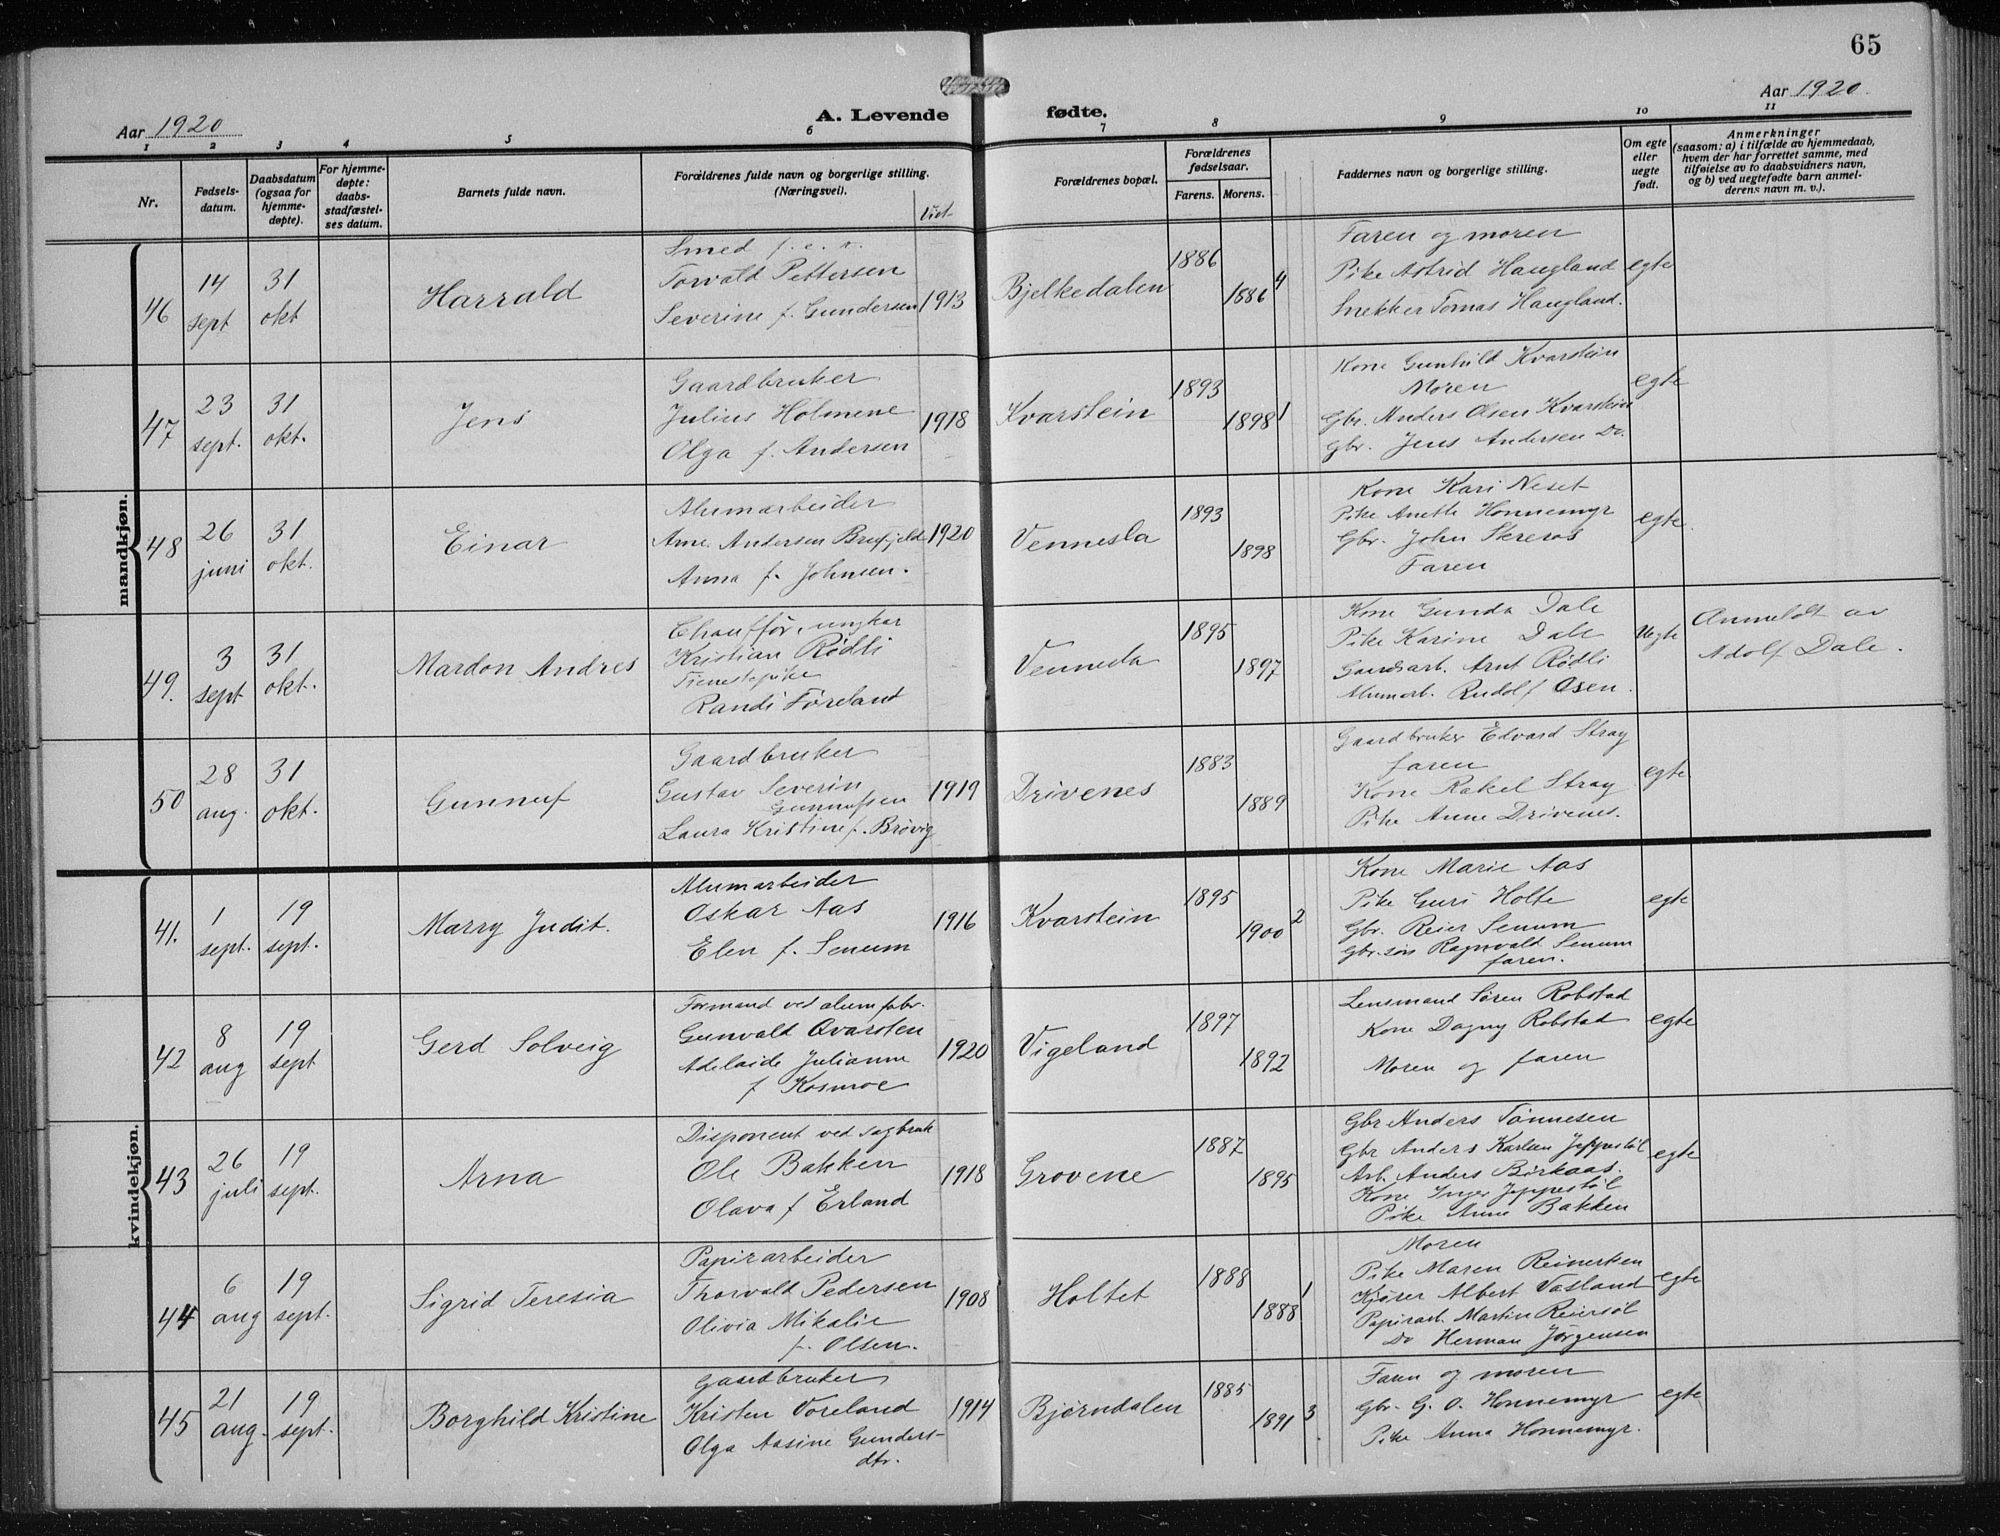 65
Aar 1920
A. Levende fødte.
Aar 1920.
1 2 3 4 5 6 7 8 9 10 11
Nr.
Fødsels-datum.
Daabsdatum (ogsaa for hjemme-døpte).
For hjemme-døpte: daabs-stadfæstel-ses datum.
Barnets fulde navn.
Forældrenes fulde navn og borgerlige stilling. (Næringsvei).
Viet
Forældrenes bopæl.
Forældrenes fødselsaar.
Farens. Morens.
Faddernes navn og borgerlige stilling.
Om egte eller uegte født.
Anmerkninger
(saasom: a) i tilfælde av hjemmedaab, hvem der har forrettet samme, med tilføielse av to daabsvidners navn, og b) ved uegtefødte barn anmel-derens navn m. v.).
mandkjøn.
46
14 sept
31 okt
Harrald
Smed f. e. r.
Torvald Pettersen
Severine f. Gundersen
1913
Bjelkedalen
1886
1886
4
Faren og moren
Pike Astrid Haugland
Snekker Tomas Haugland.
egte
47
23 sept.
31 okt.
Jens
Gaardbruker
Julius Holmene
Olga f. Andersen
1918
Kvarstein
1893
1898
1
Kone Gunhild Kvarstein
Moren
Gbr. Anders Olsen Kvarstein
Gbr. Jens Andersen Do.
egte
48
26 juni
31 okt.
Einar
Alumarbeider
Arne Andersen
Anna f. Johnsen.
1920
Vennesla
1893
1898
Kone Kari Neset
Pike Anette Honnemyr
Gbr. John Skreros
Faren
egte
49.
3 sept
31 okt.
Mardon Andres
Chauffør, ungkar
Kristian Rødli
Tienestepike
Randi Føreland
Vennesla
1895
1897
Kone Gunda Dale
Pike Karine Dale
Gaardsarb. Arnt Rødli
Alumarb. Rudolf Osen.
Uegte
Anmeldt av
Adolf Dale.
50
28 aug.
31 okt.
Gunnuf
Gaardbruker
Gustav Severin
Gunnufsen
Laura Kristine f. Brøvig
1919
Drivenes
1883
1889
Gaardbruker Edvard Stray
faren
Kone Rakel Stray
Pike Anne Drivenes.
egte
kvindekjøn.
41.
1 sept.
19 sept.
Marry Judit.
Alumarbeider
Oskar Aas
Elen f. Senum
1916
Kvarstein
1895
1900
2
Kone Marie Aas
Pike Guri Holte
Gbr. Reier Senum
Gbr.søn Ragnvald Senum
faren.
egte
42
8 aug
19 sept
Gerd Solveig
Formand ved alumfabr.
Gunvald Qvarsten
Adelaide Julianne
f Kosmoe
1920
Vigeland
1897
1892
Lensmand Søren Robstad
Kone Dagny Robstad
Moren og faren
egte
43
26 juli
19 sept.
Arna
Disponent ved sagbruk
Ole Bakken
Olava f Erland
1918
Grovene
1887
1895
Gbr Anders Tønnesen
Gbr Anders Karlsen Jeppestøl
Arb. Anders Birkaas.
Kone Inger Jeppestøl
Pike Anne Bakken
egte
44
6 aug
19 sept.
Sigrid Teresia
Papirarbeider
Thorvald Pedersen
Olivia Mikalie
f. Olsen.
1908
Holtet
1888
1888
1
Moren
Pike Maren Reinertsen
Kjører Albert Vatland
Papirarb. Martin Reiersøl
Do Herman Jørgensen
egte
45
21 aug.
19 sept.
Borghild Kristine
Gaardbruker
Kristen Voreland
Olga Aasine Gunders-
dtr.
1914
Bjørndalen
1885
1891
3
Faren og moren
Gbr. G. O. Honnemyr
Pike Anna Honnemyr.
egte